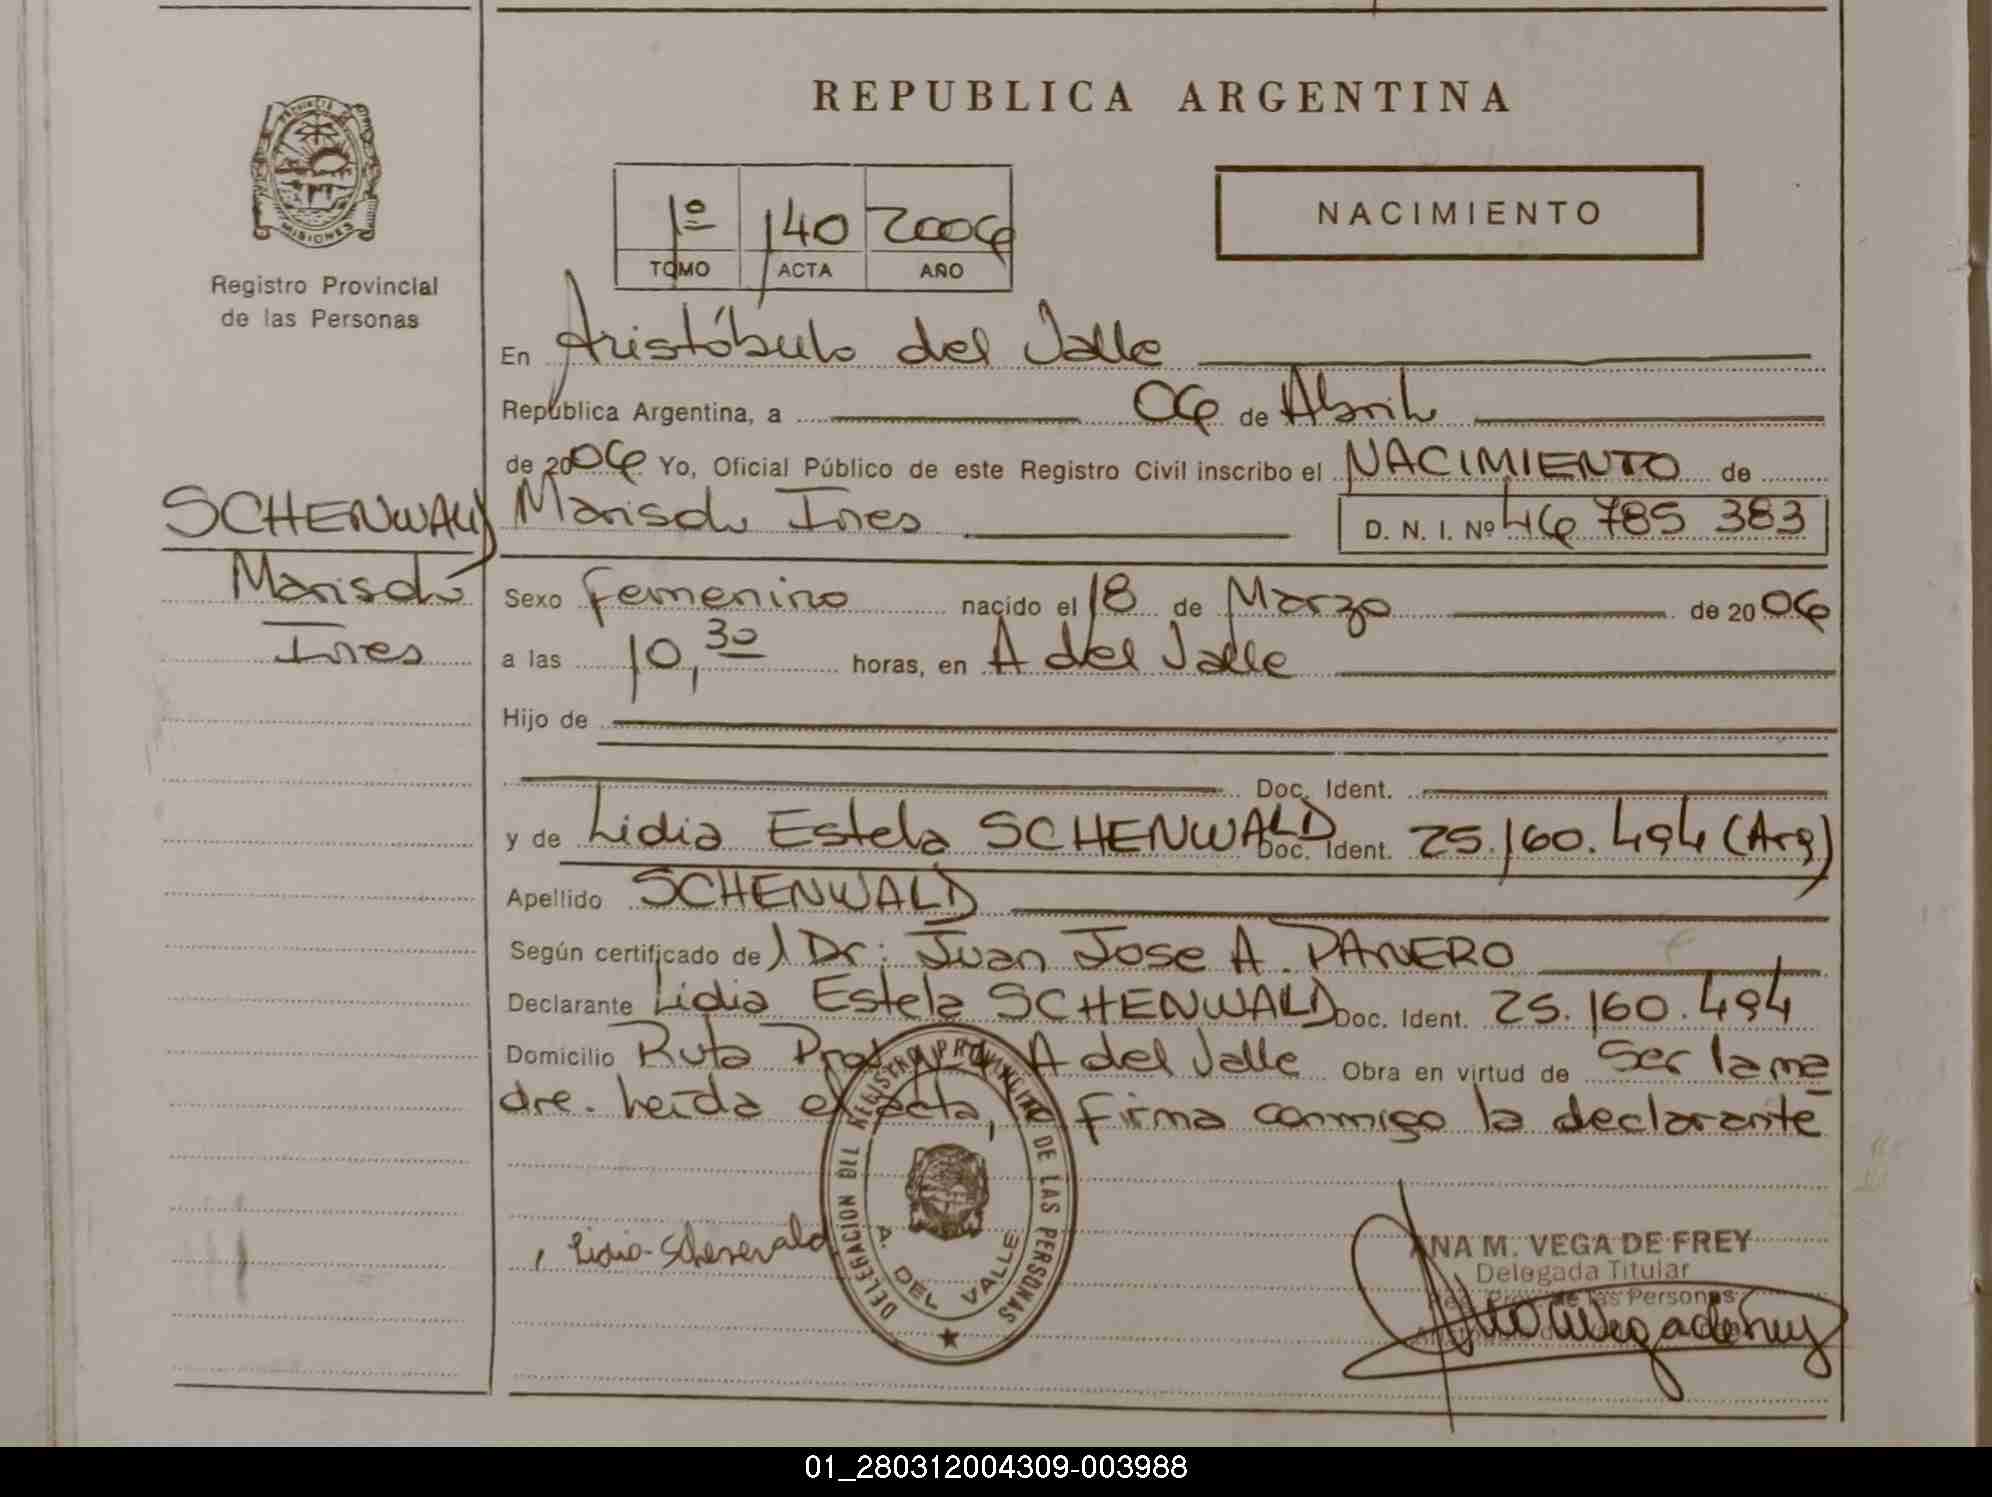 REPUBLICA ARGENTINA
PROVINCIA MISIONES
Registro Provincial
de las Personas
1º 140 2006
TOMO ACTA AÑO
NACIMIENTO
En Aristóbulo del Valle
República Argentina, a 06 de Abril
de 2006 Yo, Oficial Público de este Registro Civil inscribo el NACIMIENTO de
SCHENWALD
Marisol
Ines
Marisol Ines D. N. I. Nº 46 785 383
Sexo femenino nacido el 18 de Marzo de 2006
a las 10,30 horas, en A del Valle
Hijo de
Doc. Ident.
y de Lidia Estela SCHENWALD Doc. Ident. 25.160.494 (Arg)
Apellido SCHENWALD
Según certificado del Dr: Juan Jose A. PANERO
Declarante Lidia Estela SCHENWALD Doc. Ident. 25.160.494
Domicilio Ruta A del Valle Obra en virtud de ser la ma
dre. Leída el acta, firma conmigo la declarante
DELEGACION DEL REGISTRO PROVINCIAL DE LAS PERSONAS
A. DEL VALLE
ANA M. VEGA DE FREY
Delegada Titular
Reg. Prov. de las Personas
01_280312004309-003988